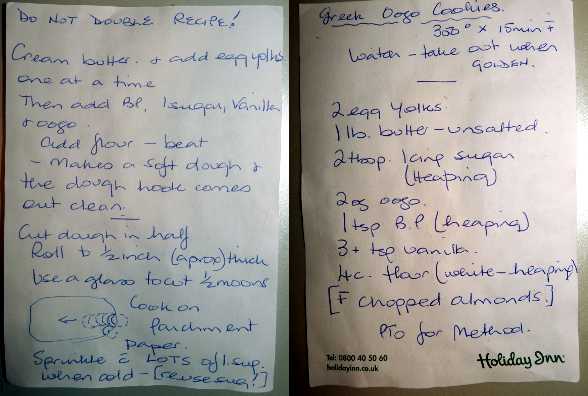 DO NOT DOUBLE RECIPE!
Cream butter & add egg yolks
one at a time
Then add BP, Isugar, Vanilla
& oogo.
Add flour – beat
– Makes a soft dough &
the dough hook comes
out clean.
Cut dough in half
Roll to ½ inch (aprox) thick
Use a glass to cut ½ moons
Cook on
parchment
paper.
Sprinkle c̄ LOTS of I.sug.
when cold – [reuse sug!]
Greek Oogo Cookies.
300° x 15min F
Watch – take out when
GOLDEN.
2 egg yolks.
1 lb. butter – unsalted.
2 tbsp. Icing sugar
(Heaping)
2 og oogo.
1 tsp B.P (heaping)
3+ tsp vanilla.
4c. flour (white – heaping)
[F chopped almonds.]
PTO for Method.
Tel: 0800 40 50 60
holidayinn.co.uk
Holiday Inn